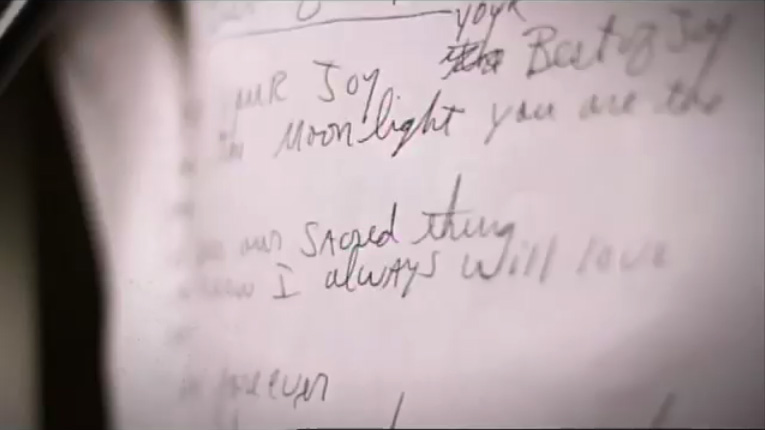 your
uR Joy Beat of Joy
Moonlight you are the
our SAcRed thing
I alwAYS will love
forever